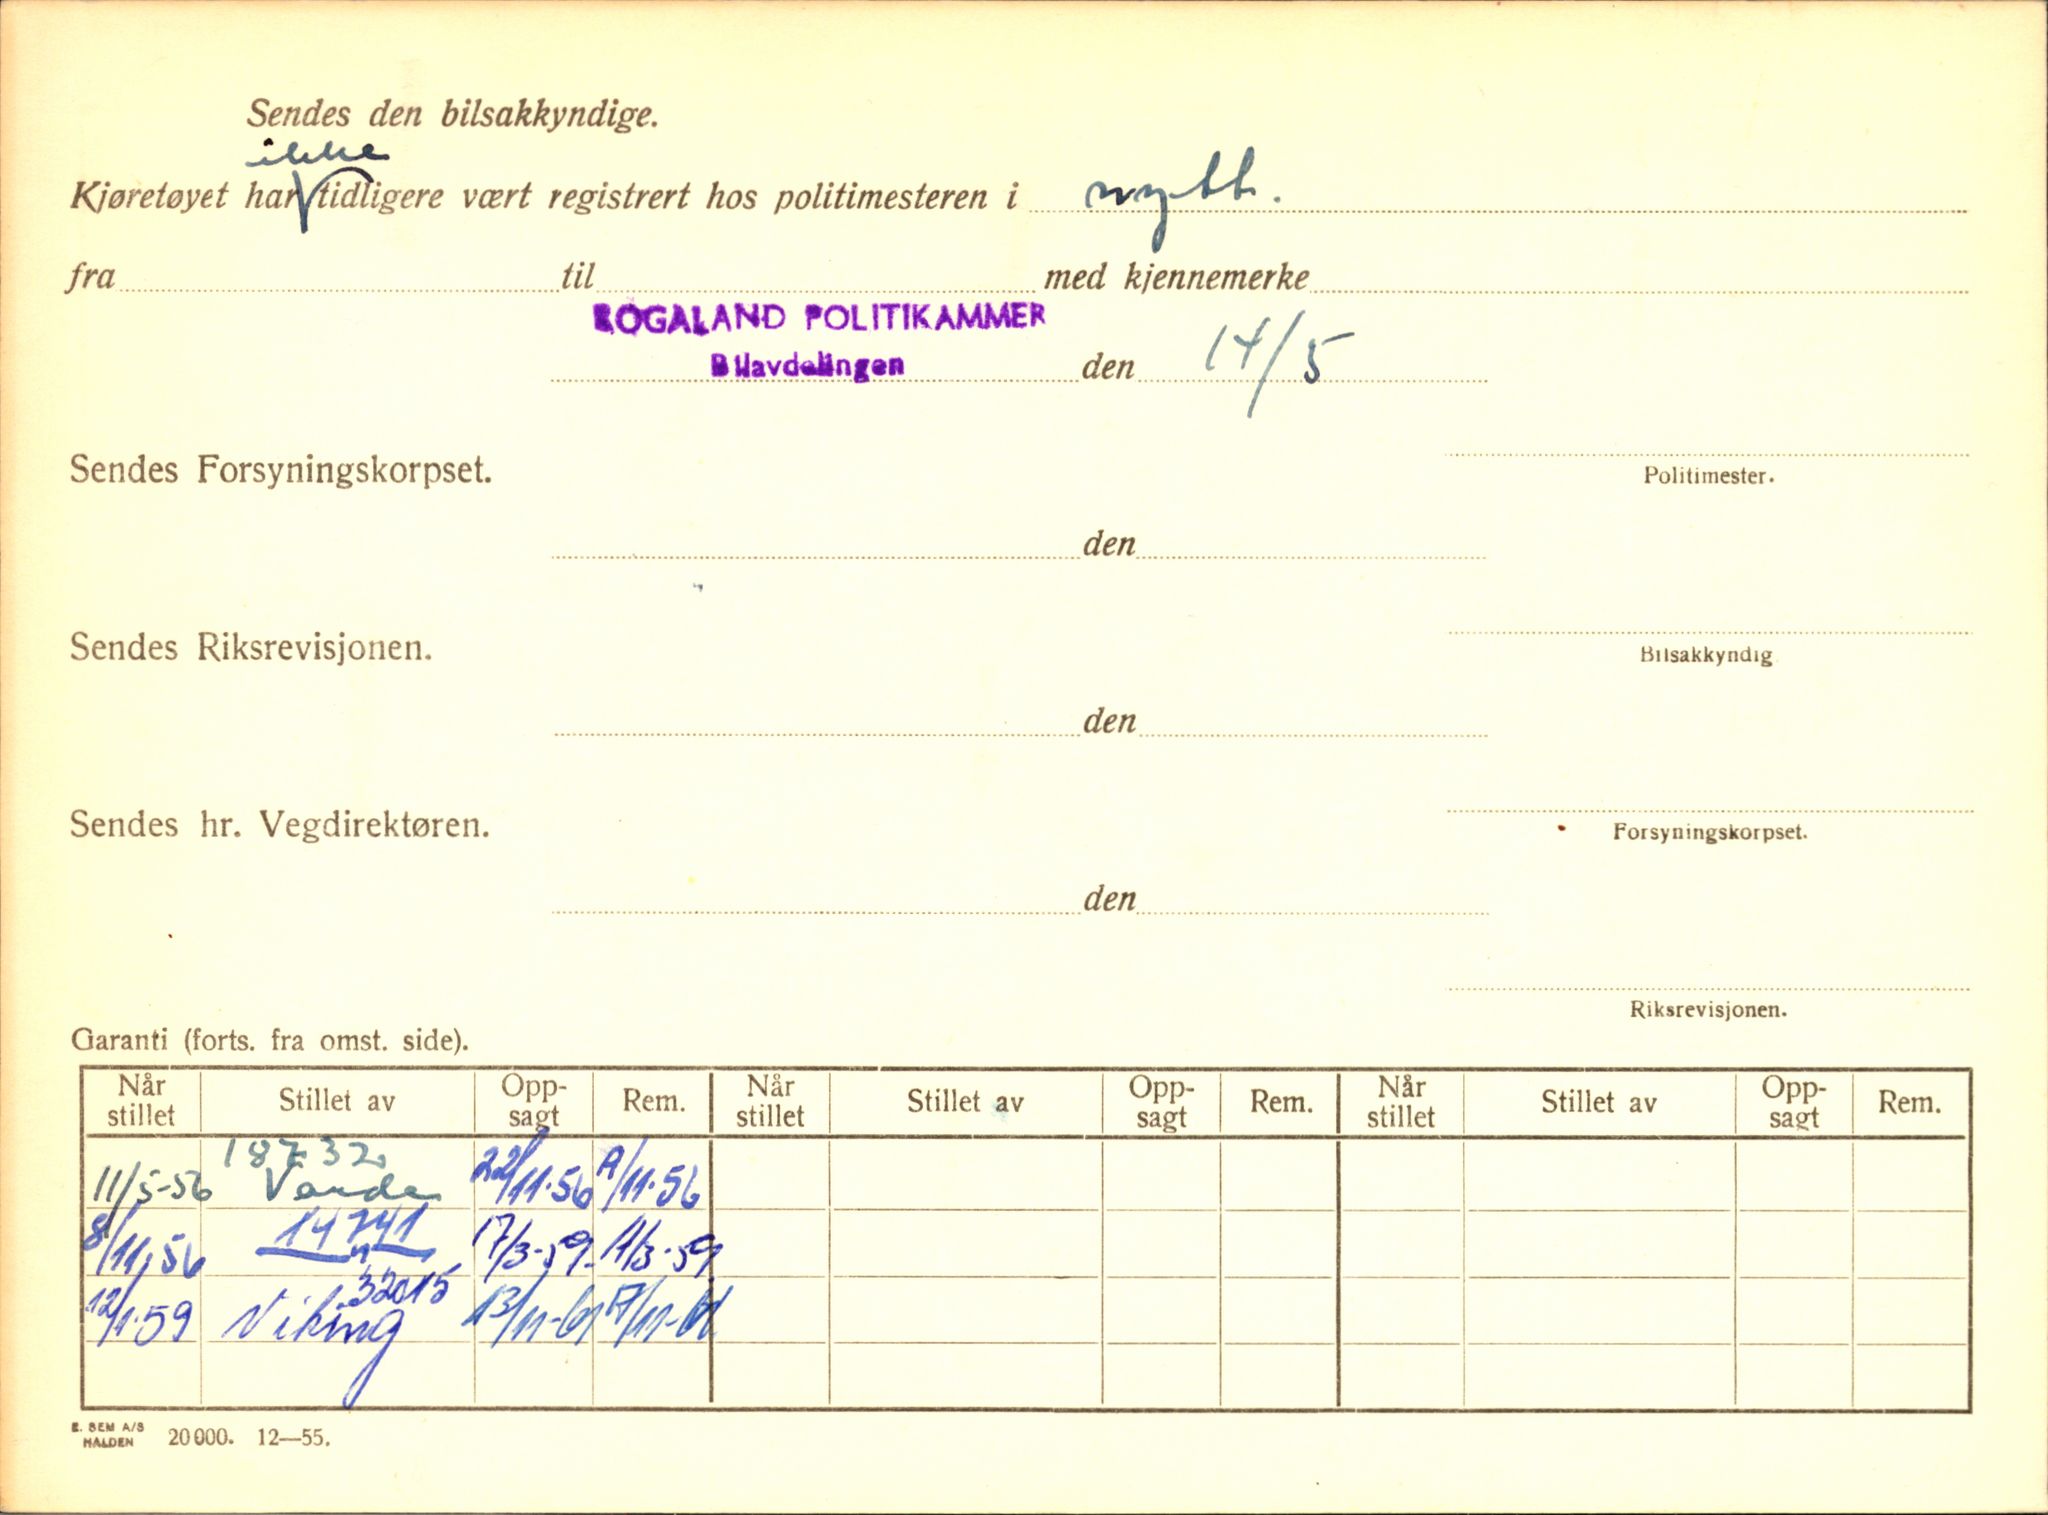 Sendes den bilsakkyndige.
ikke
Kjøretøyet har tidligere vært registrert hos politimesteren i nytt.
fra til med kjennemerke
ROGALAND POLITIKAMMER
Bilavdelingen den 14/5
Sendes Forsyningskorpset.
Politimester.
den
Sendes Riksrevisjonen.
Bilsakkyndig
den
Sendes hr. Vegdirektøren.
Forsyningskorpset.
den
Riksrevisjonen.
Garanti (forts. fra omst. side).
Når stillet Stillet av Opp-sagt Rem. Når stillet Stillet av Opp-sagt Rem. Når stillet Stillet av Opp-sagt Rem.
18732
11/5-56 Varde 22/11.56 /11.56
8/11.56 14741 17/3-59 /3-59
32015
12/1.59 Viking 13/11-61 17/11-61
E. SEM A/S
HALDEN 20000. 12—55.